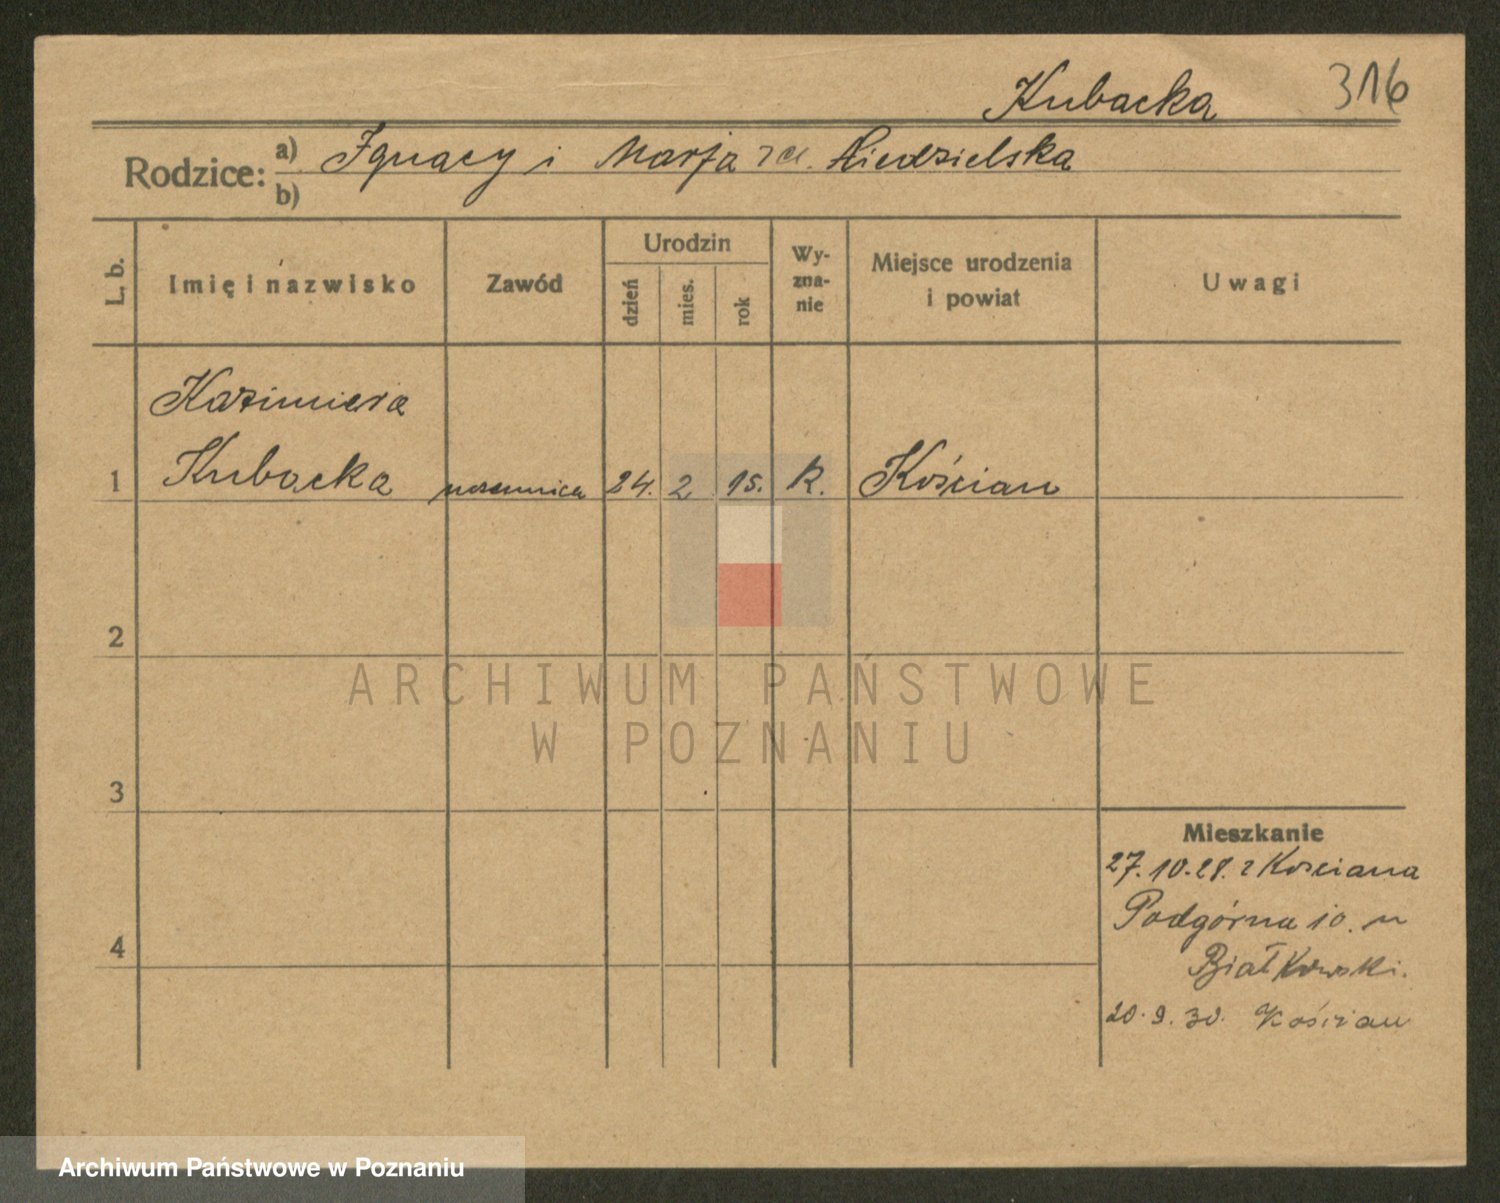 316
Kubacka
Rodzice: a) Ignacy i Marja Niedzielska
b)
L. b.
Imię i nazwisko
Zawód
Urodzin
dzień
mies.
rok
Wy-
zna-
nie
Miejsce urodzenia
i powiat
Uwagi
Kazimiera
1 Kubacka uczennica 24. 2 15. R. Kościan
2
3
4
Mieszkanie
27.10.28. z Kościana
Podgórna 10. u
Białkowski.
20.9.30. Kościan
ARCHIWUM PAŃSTWOWE
W POZNANIU
Archiwum Państwowe w Poznaniu